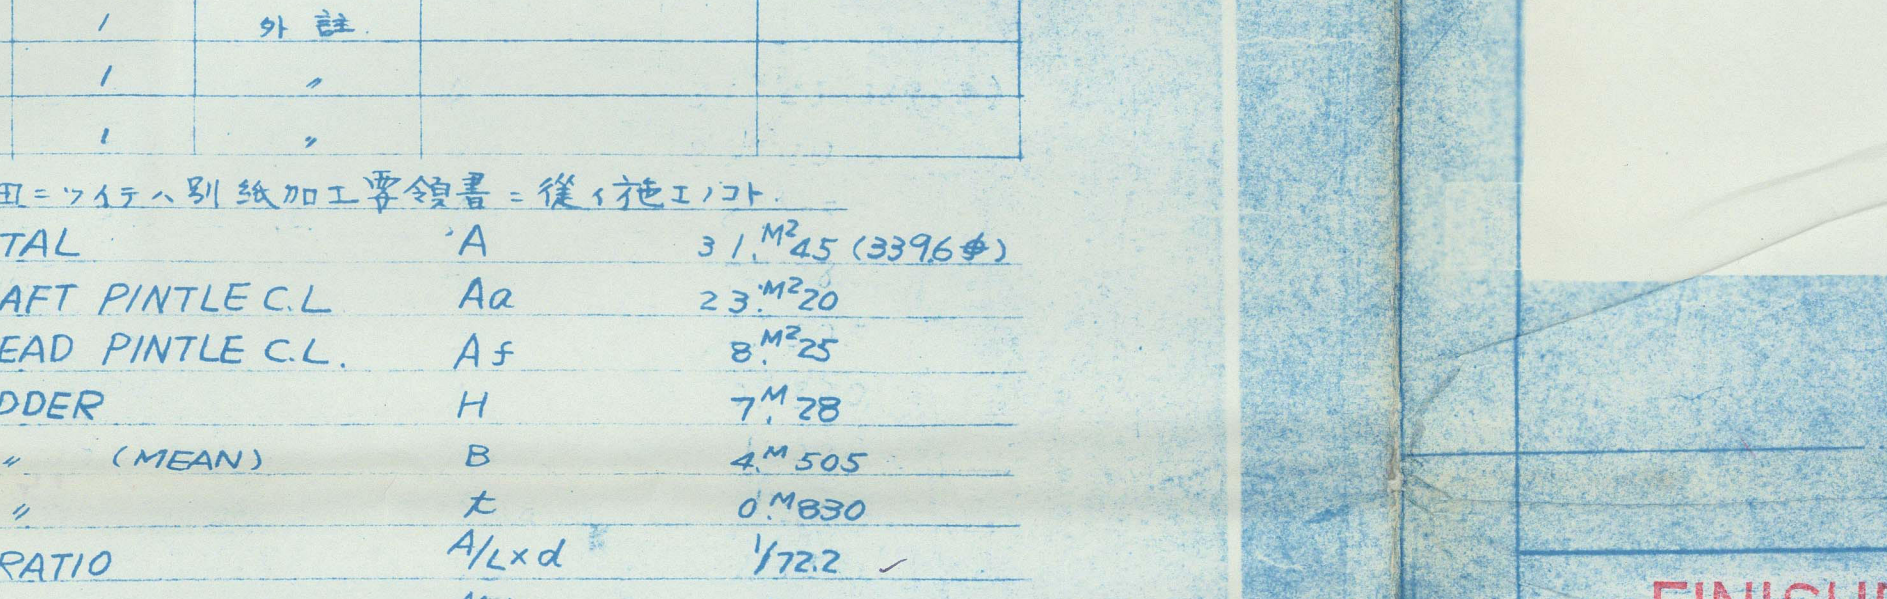 1 外註.
1 〃
1 〃
ニツイテハ別紙加工要領書ニ従イ施工ノコト.
TAL A 31.M²45 (339.6ф)
AFT PINTLE C.L Aa 23.M²20
EAD PINTLE C.L. Af 8.M²25
DDER H 7.M28
〃 (MEAN) B 4.M505
〃 t 0.M830
RATIO A/L×d 1/72.2 ✓